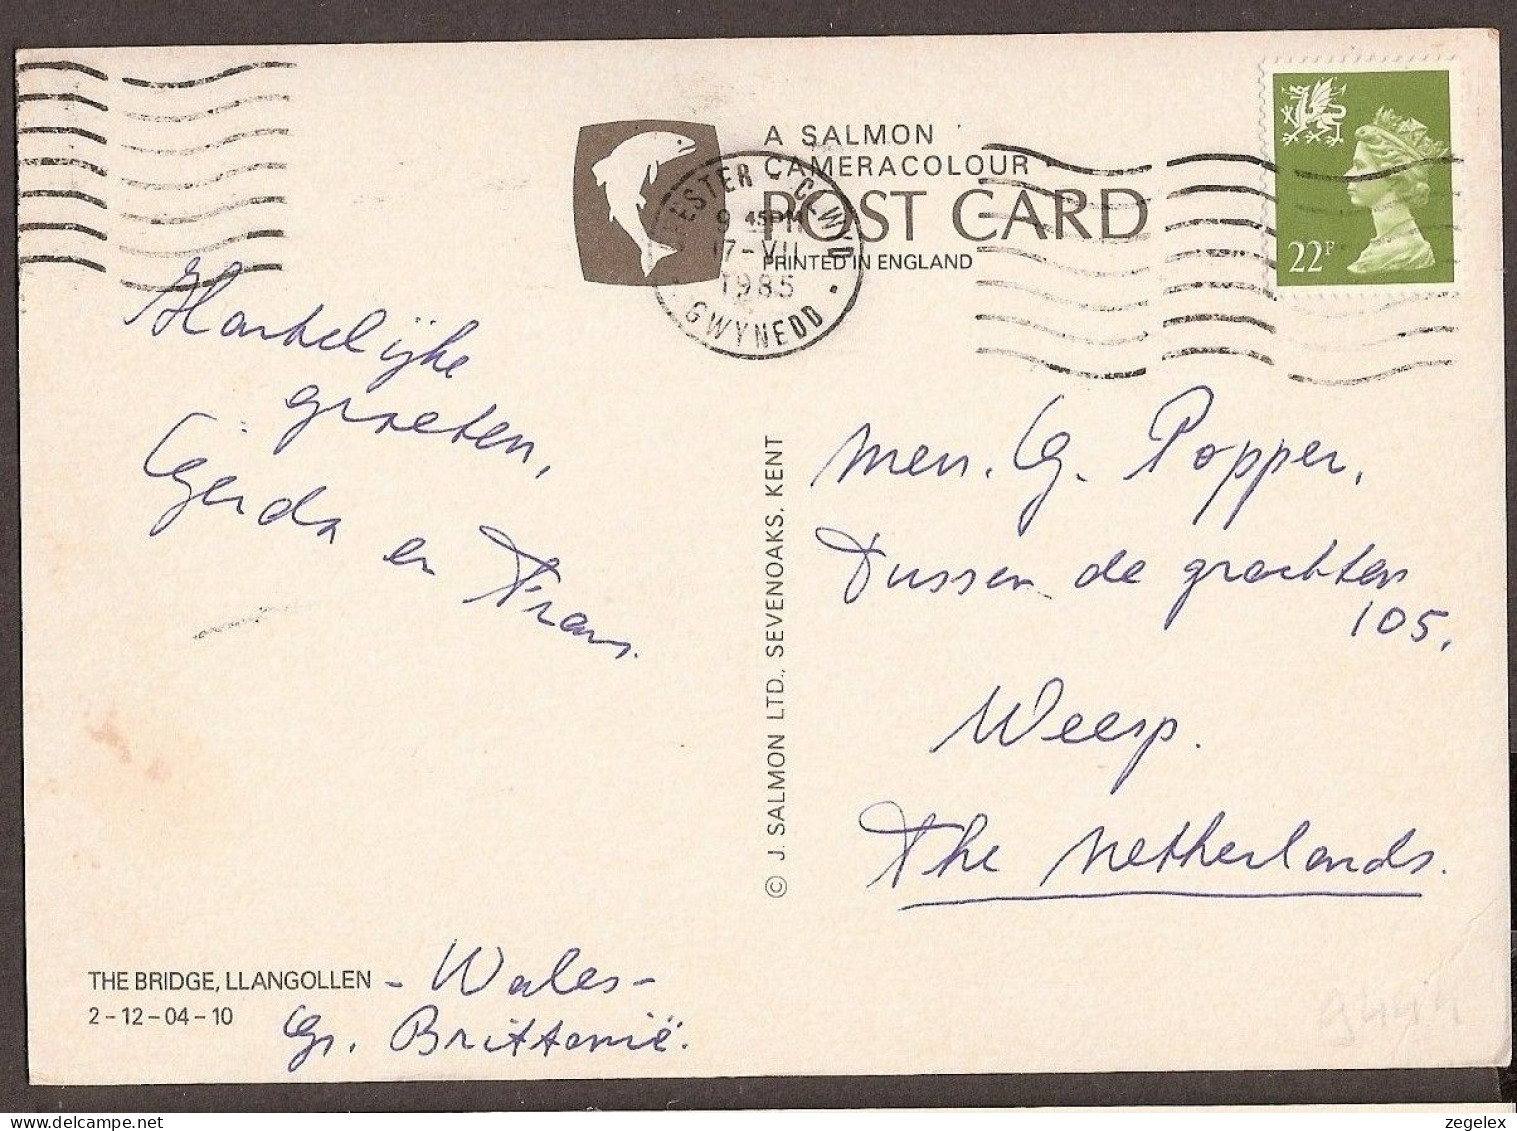 A SALMON
CAMERACOLOUR
POST CARD
PRINTED IN ENGLAND
CLWYD
9 45PM
17-VII
1985
GWYNEDD
22P
Hartelijke
groeten,
Gerda en Frans.
Mevr. G. Popper,
Tussen de grachten
105.
Weesp.
The Netherlands.
© J. SALMON LTD., SEVENOAKS, KENT
THE BRIDGE, LLANGOLLEN - Wales -
2-12-04-10 Gr. Brittanië.
zegelex